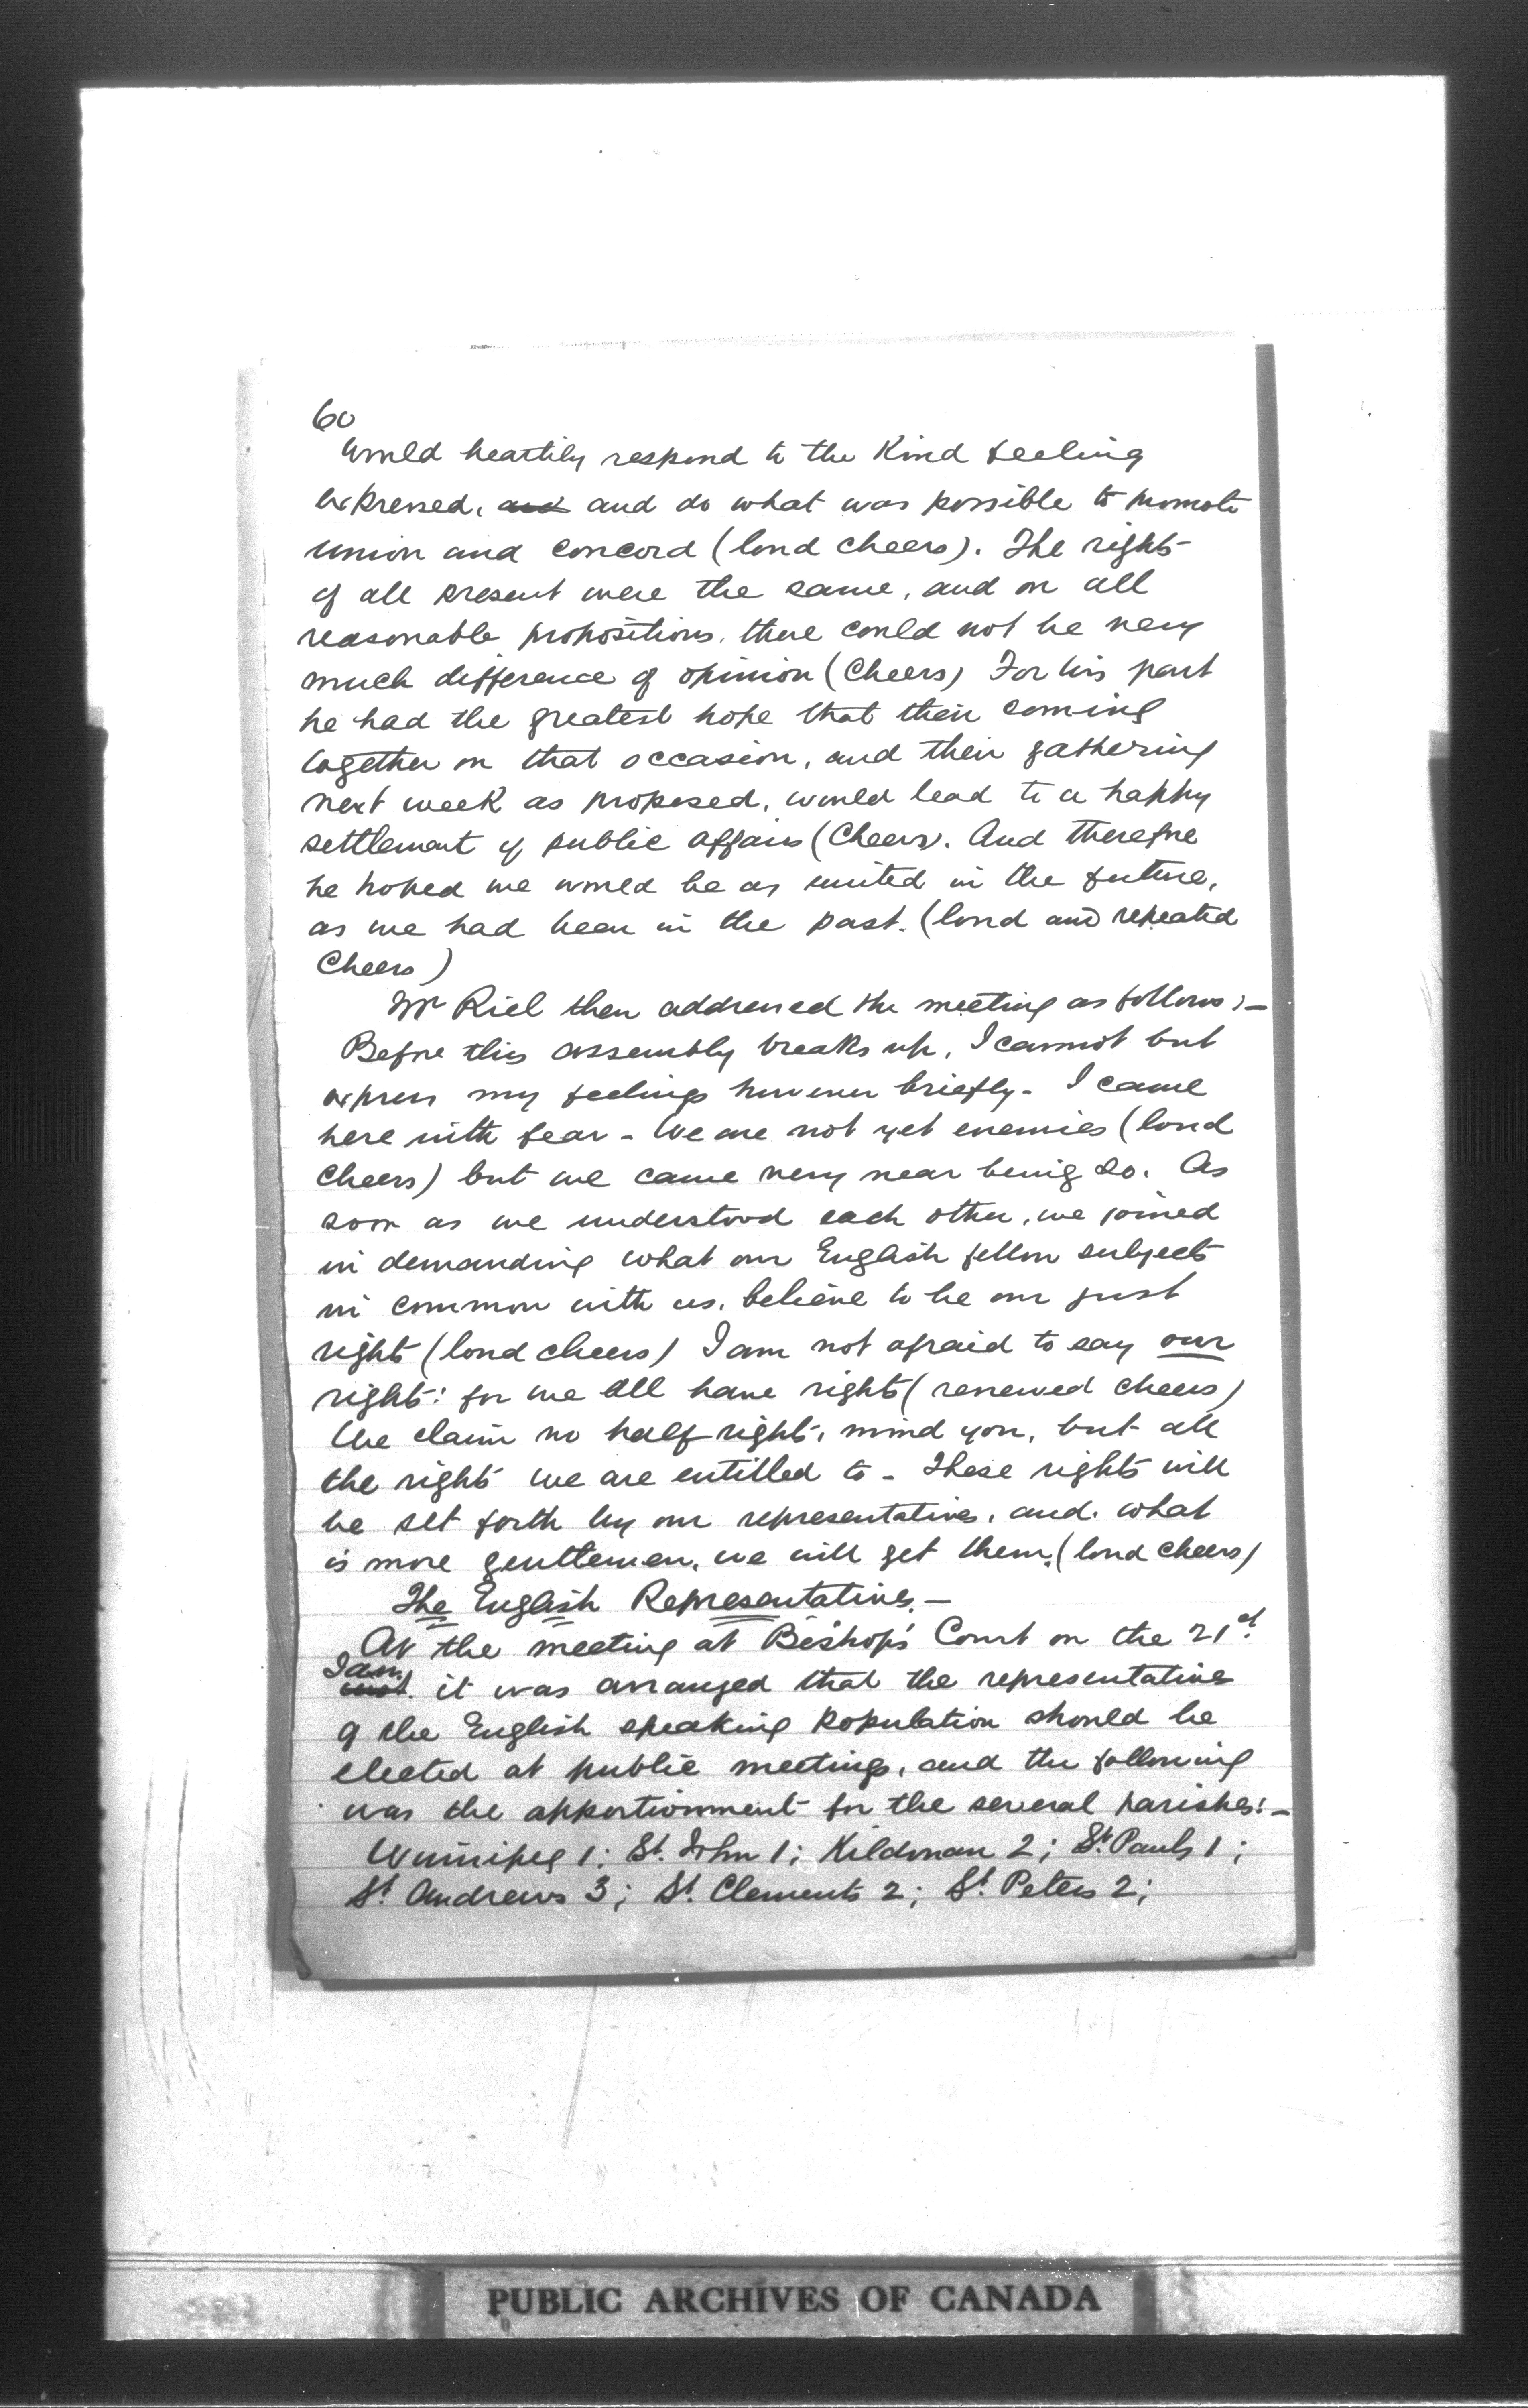 60
would heartily respond to the Kind feeling
expressed, and and do what was possible to promote
union and concord (loud cheers). The rights
of all present were the same, and on all
reasonable propositions, there could not be very
much difference of opinion (Cheers) For his part
he had the greatest hope that their coming
together on that occasion, and their gathering
next week as proposed, would lead to a happy
settlement of public affairs (Cheers). And therefore
he hoped we would be as united in the future,
as we had been in the past. (loud and repeated
Cheers)
Mr Riel then addressed the meeting as follows :-
Before this assembly breaks up, I cannot but
express my feelings however briefly - I came
here with fear - We are not yet enemies (loud
cheers) but we came very near being so. As
soon as we understood each other, we joined
in demanding what our English fellow subjects
in common with us, believe to be our just
rights (loud cheers) I am not afraid to say our
rights: for we all have rights (renewed cheers)
We claim no half rights, mind you, but all
the rights we are entitled to - These rights will
be set forth by our representatives, and, what
is more gentlemen, we will get them. (loud cheers)
The English Representatives. -
At the meeting at Bishop's Court on the 21st
Jan. inst. it was arranged that the representatives
of the English speaking population should be
elected at public meetings, and the following
was the apportionment for the several parishes: -
Winnipeg 1: St. John 1; Kildonan 2; St. Pauls 1;
St. Andrews 3; St. Clements 2; St. Peters 2;
PUBLIC ARCHIVES OF CANADA